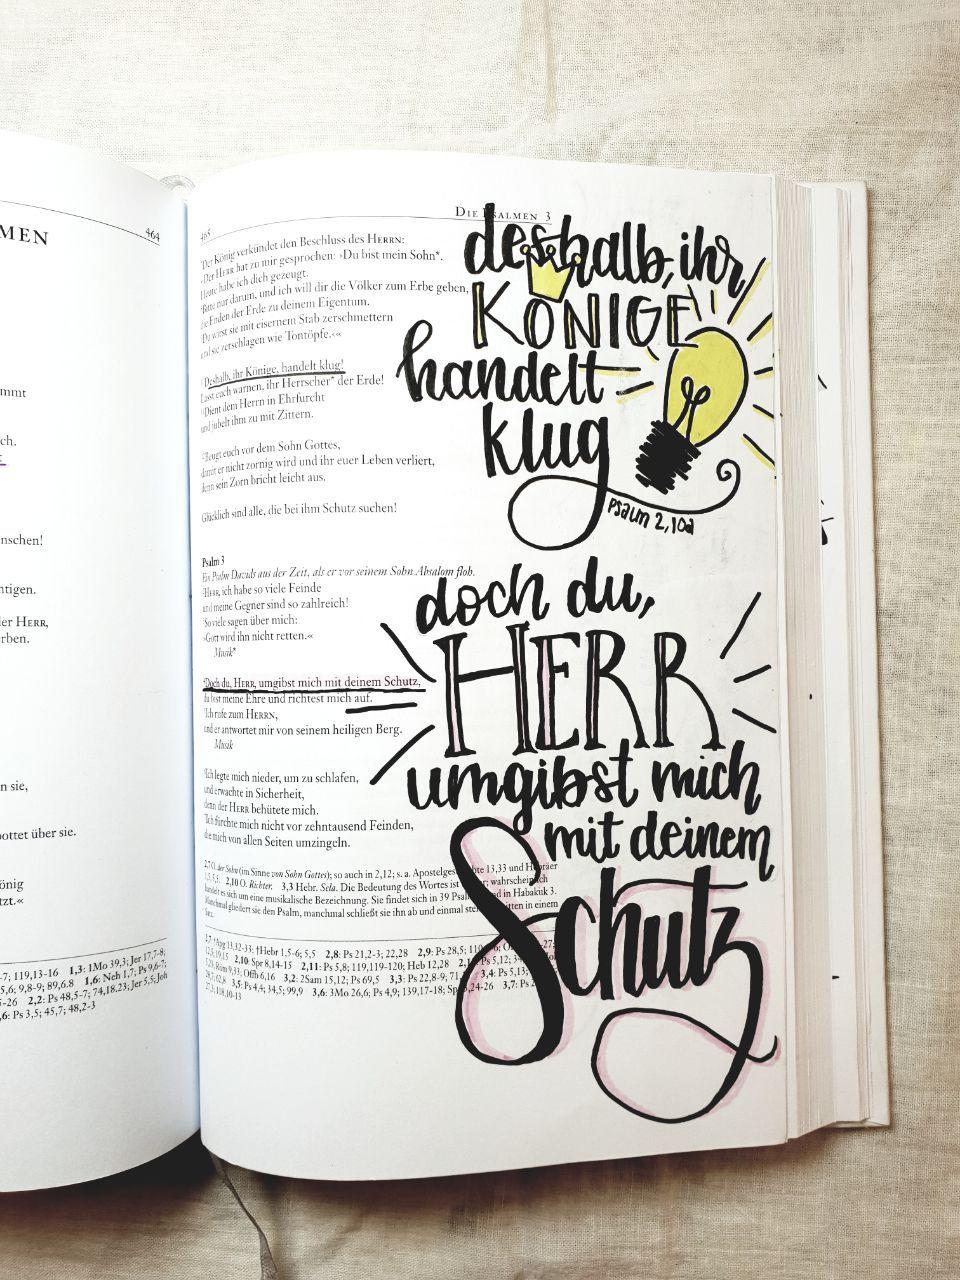 MEN
464
mmt
ch.
nschen!
htigen.
der HERR,
rben.
n sie,
pottet über sie.
König
tzt.«
-7; 119,13-16 1,3: 1Mo 39,3; Jer 17,7-8;
5,6; 9,8-9; 89,6.8 1,6: Neh 1,7; Ps 9,6-7;
5-26 2,2: Ps 48,5-7; 74,18.23; Jer 5,5; Joh
,6: Ps 3,5; 45,7; 48,2-3
465
DIE PSALMEN 3
Der König verkündet den Beschluss des HERRN:
»Der HERR hat zu mir gesprochen: ›Du bist mein Sohn*.
Heute habe ich dich gezeugt.
Bitte nur darum, und ich will dir die Völker zum Erbe geben,
die Enden der Erde zu deinem Eigentum.
Du wirst sie mit eisernem Stab zerschmettern
und sie zerschlagen wie Tontöpfe.‹«
Deshalb, ihr Könige, handelt klug!
Lasst euch warnen, ihr Herrscher* der Erde!
Dient dem Herrn in Ehrfurcht
und jubelt ihm zu mit Zittern.
Beugt euch vor dem Sohn Gottes,
damit er nicht zornig wird und ihr euer Leben verliert,
denn sein Zorn bricht leicht aus.
Glücklich sind alle, die bei ihm Schutz suchen!
Psalm 3
Ein Psalm Davids aus der Zeit, als er vor seinem Sohn Absalom floh.
HERR, ich habe so viele Feinde
und meine Gegner sind so zahlreich!
So viele sagen über mich:
»Gott wird ihn nicht retten.«
Musik*
Doch du, HERR, umgibst mich mit deinem Schutz,
du bist meine Ehre und richtest mich auf.
Ich rufe zum HERRN,
und er antwortet mir von seinem heiligen Berg.
Musik
Ich legte mich nieder, um zu schlafen,
und erwachte in Sicherheit,
denn der HERR behütete mich.
Ich fürchte mich nicht vor zehntausend Feinden,
die mich von allen Seiten umzingeln.
2,7 O. der Sohn (im Sinne von Sohn Gottes); so auch in 2,12; s. a. Apostelges 13,33 und Hebräer
1,5; 5,5. 2,10 O. Richter. 3,3 Hebr. Sela. Die Bedeutung des Wortes ist wahrscheinlich
handelt es sich um eine musikalische Bezeichnung. Sie findet sich in 39 Psalmen und in Habakuk 3.
Manchmal gliedert sie den Psalm, manchmal schließt sie ihn ab und einmal steht mitten in einem
Satz.
2,7: †Apg 13,32-33; †Hebr 1,5-6; 5,5 2,8: Ps 21,2-3; 22,28 2,9: Ps 28,5; 110
2,10: Spr 8,14-15 2,11: Ps 5,8; 119,119-120; Heb 12,28
Röm 9,33; Offb 6,16 3,2: 2Sam 15,12; Ps 69,5 3,3: Ps 22,8-9; 71 3,4: Ps 5,13;
3,5: Ps 4,4; 34,5; 99,9 3,6: 3Mo 26,6; Ps 4,9; 139,17-18; Spr 24-26 3,7: Ps
27,3; 118,10-13
deshalb, ihr
KÖNIGE
handelt
klug
psalm 2,10a
doch du,
HERR
umgibst mich
mit deinem
Schutz